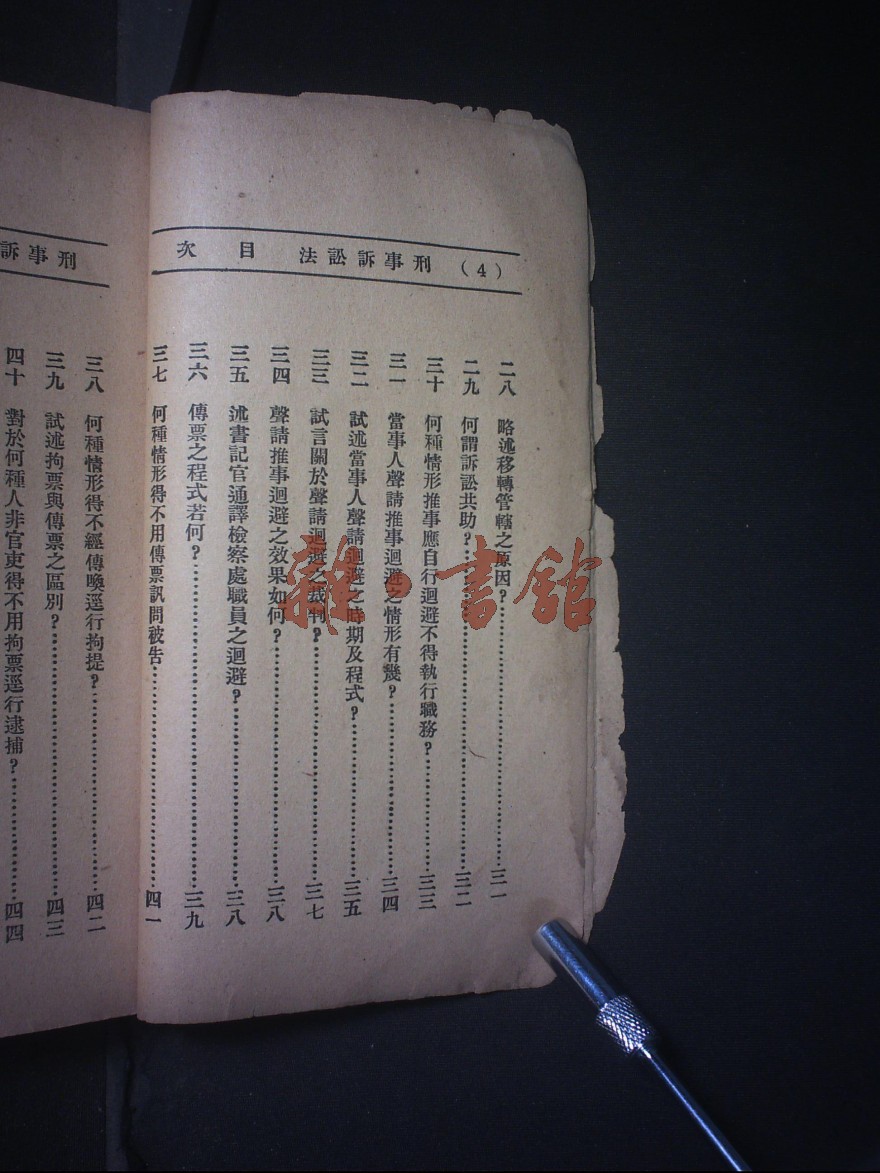 (4) 刑事訴訟法 目次
二八 略述移轉管轄之原因?……三一
二九 何謂訴訟共助?……三二
三十 何種情形推事應自行迴避不得執行職務?……三三
三一 當事人聲請推事迴避之情形有幾?……三四
三二 試述當事人聲請迴避之時期及程式?……三五
三三 試言關於聲請迴避之裁判?……三七
三四 聲請推事迴避之效果如何?……三八
三五 述書記官通譯檢察處職員之迴避?……三八
三六 傳票之程式若何?……三九
三七 何種情形得不用傳票訊問被告……四一
刑事訴
三八 何種情形得不經傳喚逕行拘提?……四二
三九 試述拘票與傳票之區別?……四三
四十 對於何種人非官吏得不用拘票逕行逮捕?……四四
雜·書館